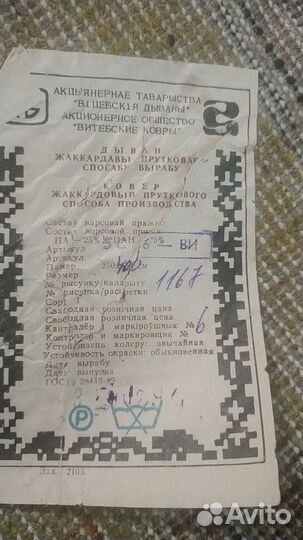 АКЦЫЯНЕРНАЕ ТАВАРЫСТВА
"ВIЦЕБСКIЯ ДЫВАНЫ"
АКЦИОНЕРНОЕ ОБЩЕСТВО
"ВИТЕБСКИЕ КОВРЫ"
ДЫВАН
ЖАККАРДАВЫ ПРУТКОВАГА
СПОСАБУ ВЫРАБУ
КОВЕР
ЖАККАРДОВЫЙ ПРУТКОВОГО
СПОСОБА ПРОИЗВОДСТВА
Састаў варсовай пражы:
Состав ворсовой пряжи:
ПА — 25% ПАН 75%
Артикул
Артикул ВИ
Памер 250 см
Размер
№ рысунку/каларыту 1167
№ рисунка/расцветки
Сорт 1
Свабодная рознiчная цана
Свободная розничная цена
Кантралёр i маркiроўшчык № 6
Контролер и маркировщик №
Устойлiвасць колеру: звычайная
Устойчивость окраски: обыкновенная
Дата вырабу
Дата выпуска
ГОСТ 28415-89
P
Зак. 2103
Avito